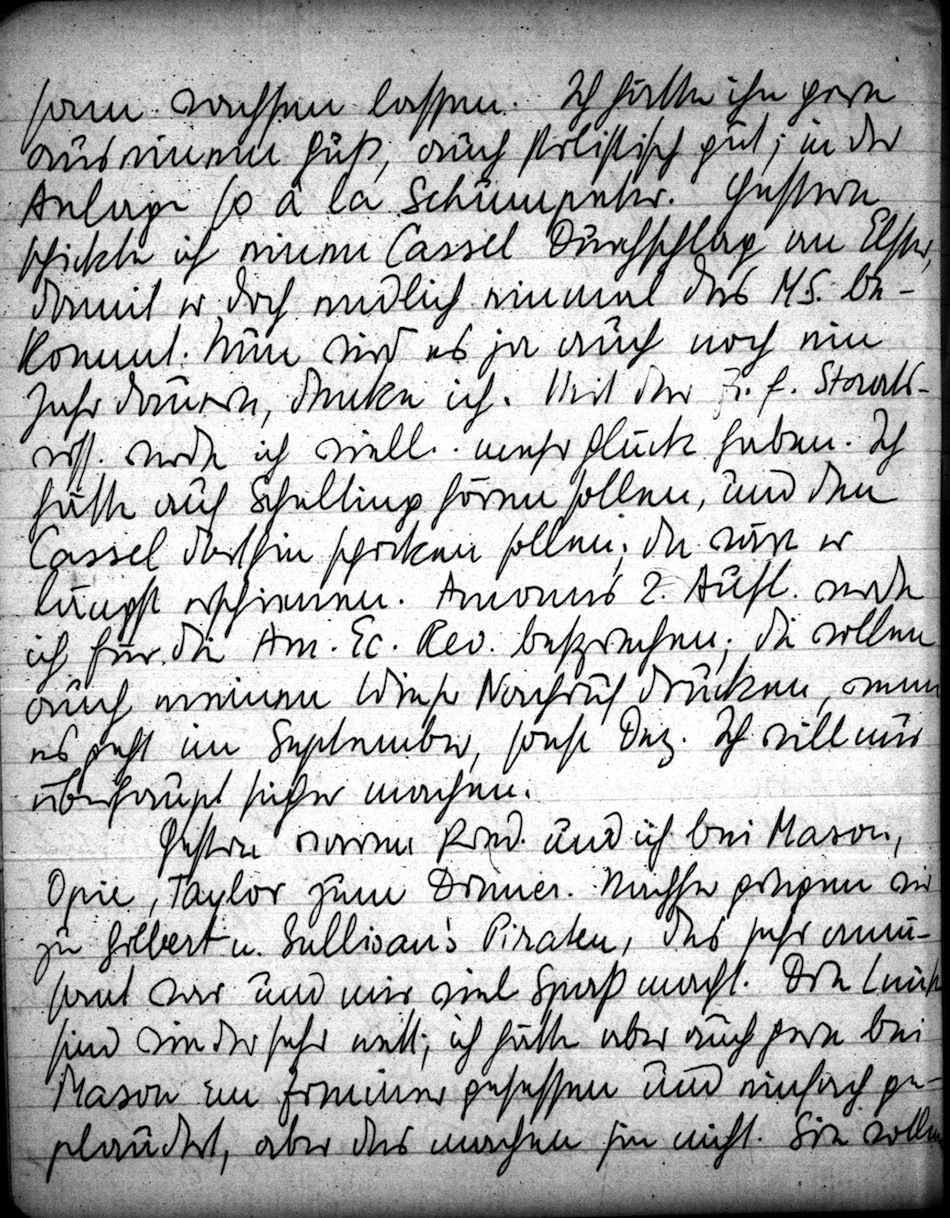 sam wachsen lassen. Ich hätte ihn gern
aus einem Guß, auch stilistisch gut; in der
Anlage so à la Schumpeter. Gestern
schickte ich einen Cassel Durchschlag an Elster,
damit er doch endlich einmal das MS. be-
kommt. Nun wird es ja auch noch ein
Jahr dauern, denke ich. Mit der Z. f. Staats-
wss. werde ich viell. mehr Glück haben. Ich
hätte auf Schelting hören sollen, und den
Cassel dorthin schicken sollen; da wäre er
längst erschienen. Amonns 2. Aufl. werde
ich für die Am. Ec. Rev. besprechen; die wollen
auch meinen Wieser Nachruf drucken, wenn
es geht im September, sonst Dez. Ich will nur
überhaupt sicher machen.
Gestern waren und ich bei Mason,
Opie, Taylor zum Dinner. Nachher gingen wir
zu Gilbert u. Sullivan's Piraten, das sehr amü-
sant war und mir viel Spaß macht. Die Leute
sind wieder sehr nett; ich hätte aber auch gern bei
Mason im Zimmer gesessen und einfach ge-
plaudert, aber das machen sie nicht. Sie wollen